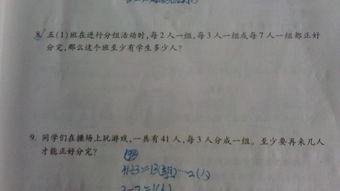 8. 五(1)班在进行分组活动时,每2人一组,每3人一组或每7人一组都正好
分完,那么这个班至少有学生多少人?
9. 同学们在操场上玩游戏,一共有41人,每3人分成一组。至少要再来几人
才能正好分完?
41÷3=13(组)……2(人)
3-2=1(人)